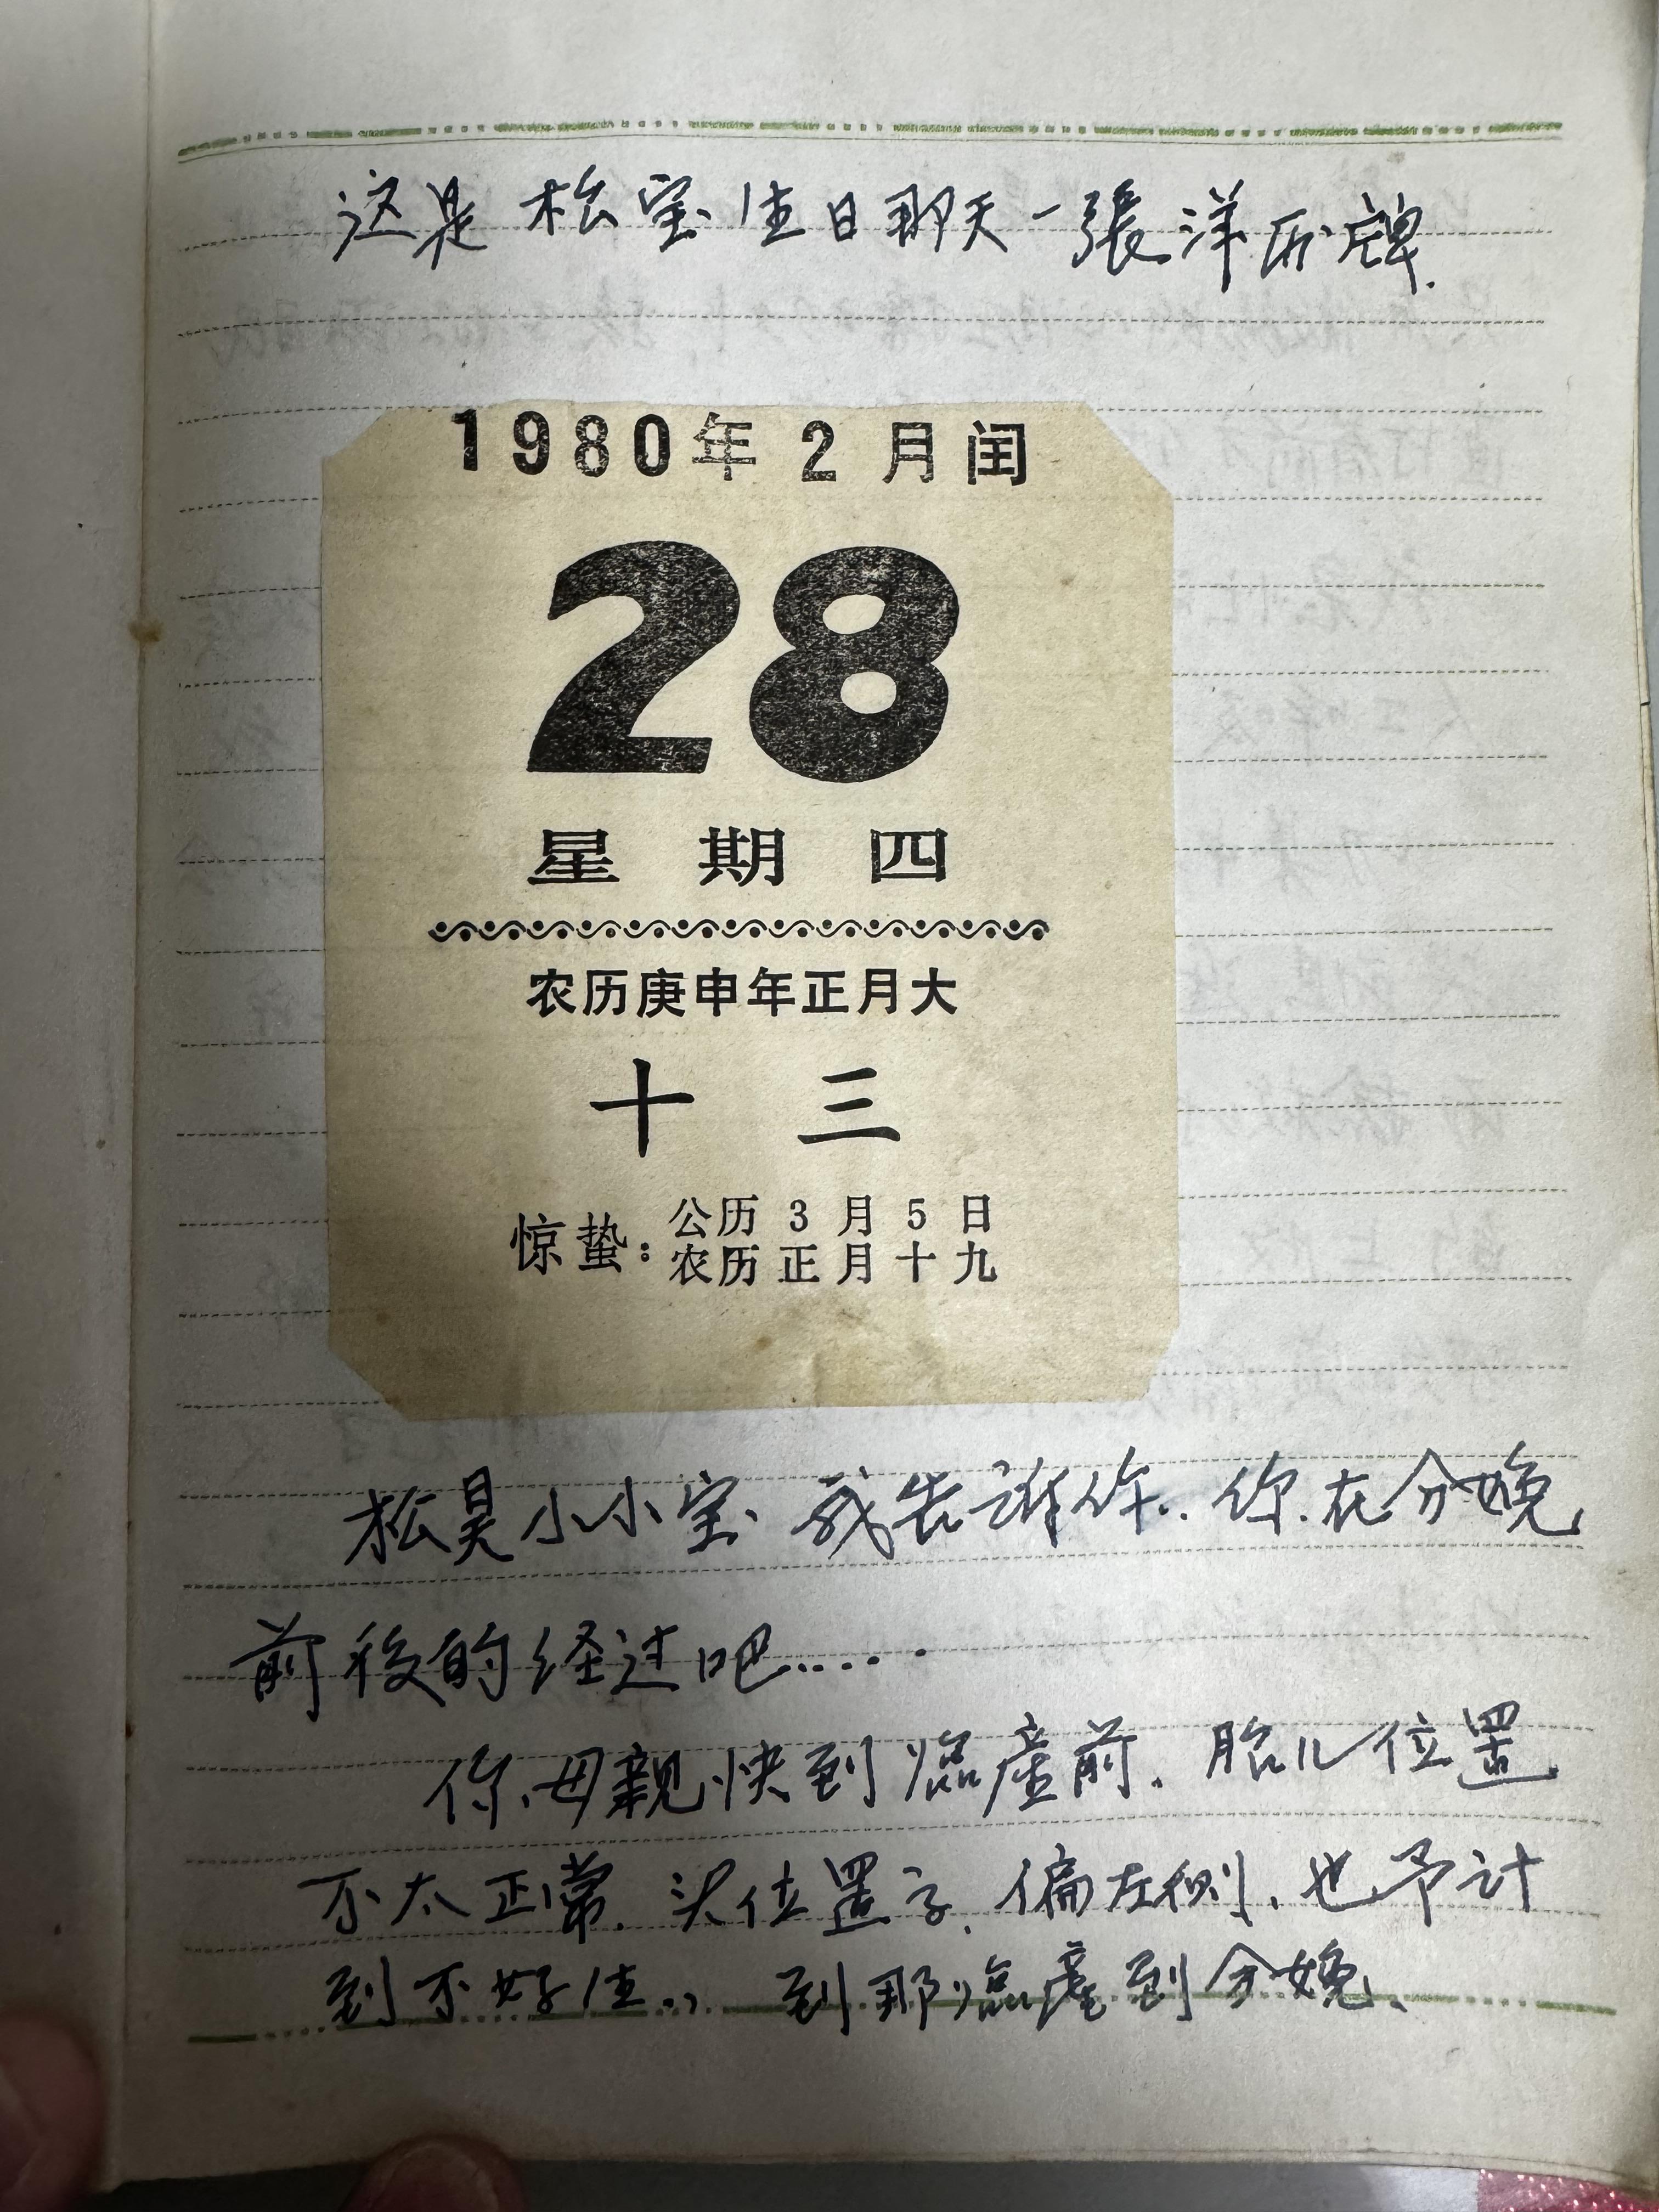 这是松宝生日那天一張洋历牌.
1980年2月闰
28
星期四
农历庚申年正月大
十三
惊蛰：公历3月5日
农历正月十九
松昊小小宝 我告诉你.. 你在分娩
前後的经过吧......
你母親快到臨産前、胎儿位置
不太正常. 头位置子. 偏左侧、也予计
到不好生.. 到那臨産到分娩、